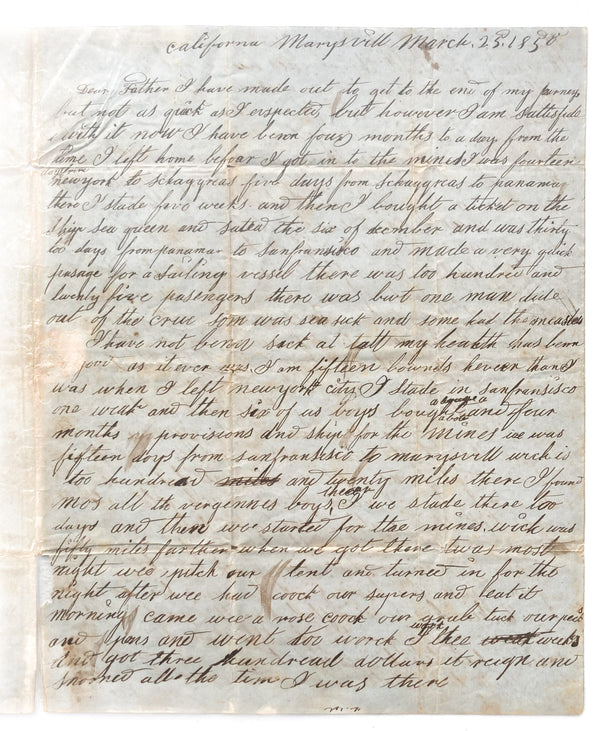 California Marysvill March. 25. 1850
Dear Father I have made out to get to the end of my jurney
but not as quick as I expected, but however I am sattisfide
with it now I have benn four months to a day from the
time I left home befoar I got in to the mines I was fourteen
days from
newyork to Schaggreas five days from Schaggreas to panama
there I stade five weeks and then I bought a ticket on the
Ship sea queen and saled the six of december and was thirty
too days from panama to sanfransisco and made a very quick
pasage for a sailing vessel there was too hundred and
twenty five pasengers there was but one man dide
out of the crue som was sea sick and some had the measles
I have not benn sack at tall my health has benn
good as it ever was I am fifteen pounds hever than I
was when I left newyork city I stade in sanfransisco
one weak and then six of us boys bought and four
months provisions and ship for the mines we was
fifteen days from sanfransisco to marysvill wich is
too hundread miles and twenty miles there I found
mos all th vergennes boys we stade there too
theer
days and then wee started for the mines. wich was
fifty miles farther when we got there twas most
night wee pitch our tent and turned in for the
night after wee had coock our supers and eat it
morning came wee a rose coock our took our
and pans and went too worck I thee weeks
work
and got three hundread dollars it reign and
snowed all the tim I was there